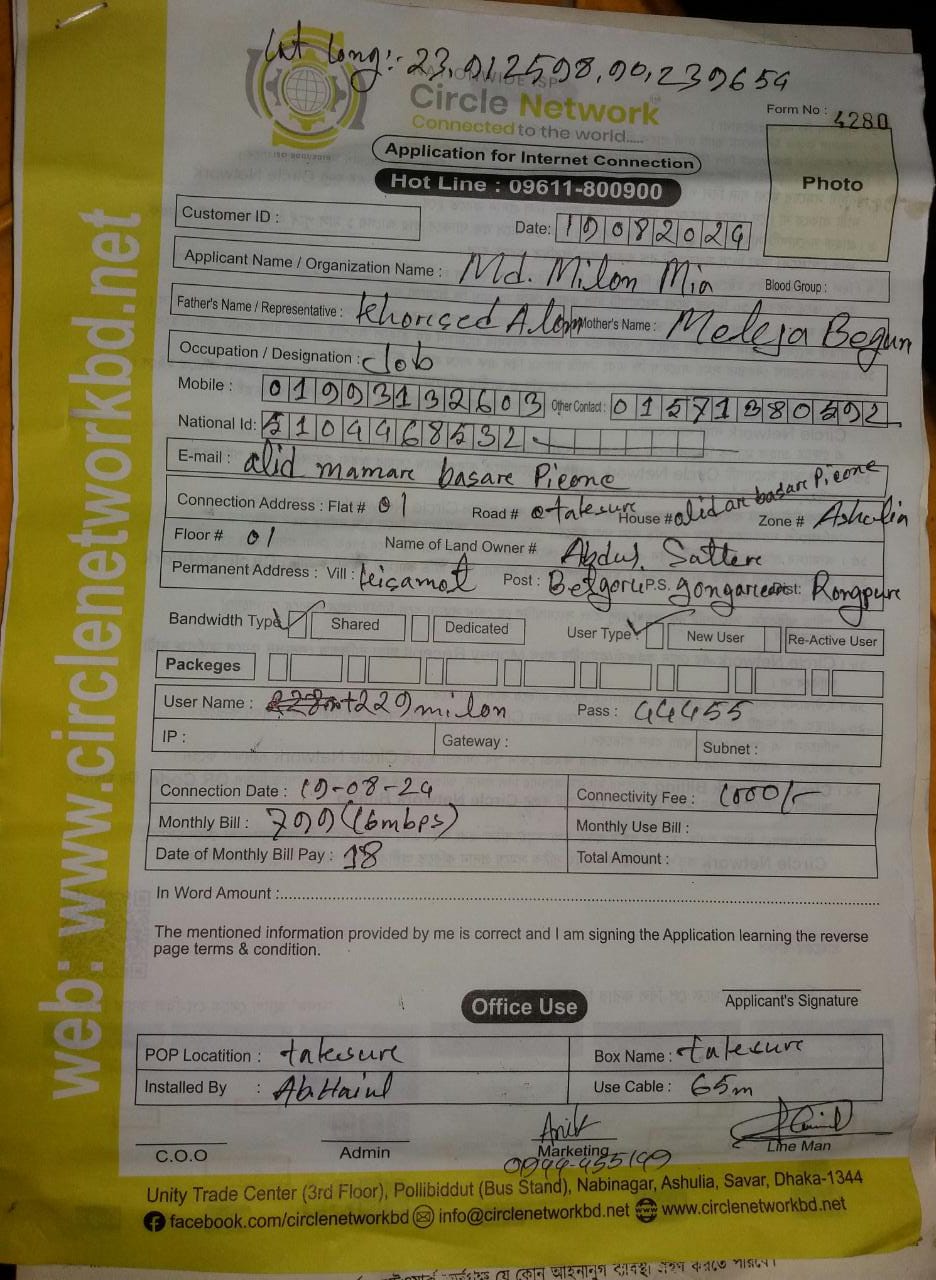 Lat long:- 23,912598,90,239654
NATIONWIDE ISP
Circle Network
Connected to the world.....
ISO 9001:2015
Form No : 4280
Application for Internet Connection
Photo
Hot Line : 09611-800900
Customer ID :
Date: 19082024
Applicant Name / Organization Name : Md. Milon Mia Blood Group :
Father's Name / Representative : Khorised Alom Mother's Name : Meleja Begun
Occupation / Designation : Job
Mobile : 01993132603 Other Contact : 01571380592
National Id: 5104468532
E-mail : alid mamare basare Picone
Connection Address : Flat # 01 Road # House # alid are basare Picone Zone # Ashulia
Floor # 01 Name of Land Owner # Abdus Sattere
Permanent Address : Vill : Post : P.S. Dist: Rongpure
Bandwidth Type Shared Dedicated User Type New User Re-Active User
Packeges
User Name : 229milon Pass : 44455
IP : Gateway : Subnet :
Connection Date : 19-08-24 Connectivity Fee : 1000/-
Monthly Bill : 799 (6mbps) Monthly Use Bill :
Date of Monthly Bill Pay : 18 Total Amount :
In Word Amount :
The mentioned information provided by me is correct and I am signing the Application learning the reverse
page terms & condition.
Applicant's Signature
Office Use
POP Locatition : takesure Box Name : takesure
Installed By : Use Cable : 65m
Anik
C.O.O Admin Marketing Line Man
Unity Trade Center (3rd Floor), Pollibiddut (Bus Stand), Nabinagar, Ashulia, Savar, Dhaka-1344
facebook.com/circlenetworkbd info@circlenetworkbd.net www.circlenetworkbd.net
web: www.circlenetworkbd.net